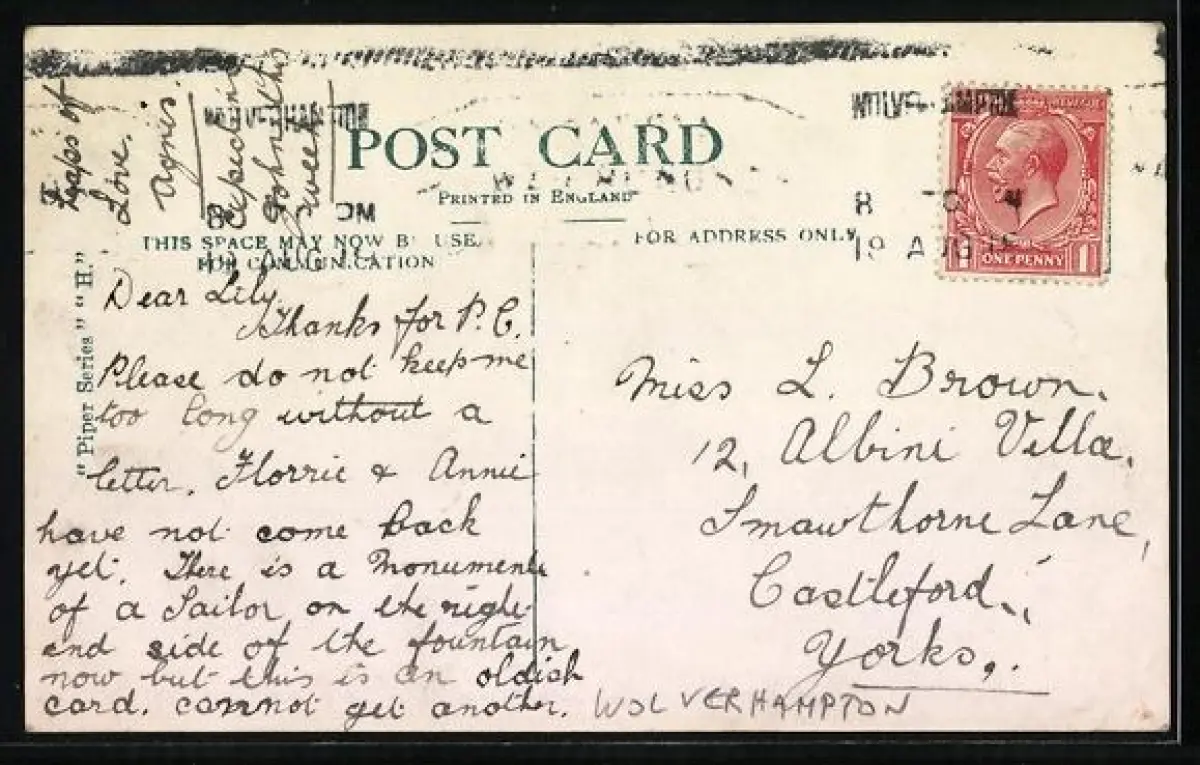 Heaps of
Love.
Agnis.
expecting
John this
week
WOLVERHAMPTON
POST CARD
PRINTED IN ENGLAND
8 PM
THIS SPACE MAY NOW BE USED
FOR COMMUNICATION
FOR ADDRESS ONLY
19 AUG
ONE PENNY
"Piper Series" "H."
Dear Lily
Thanks for P.C.
Please do not keep me
too long without a
letter. Florrie & Annie
have not come back
yet. There is a Monument
of a Sailor on the right
end side of the fountain
now but this is an oldish
card. cannot get another.
Miss L. Brown.
12, Albini Villa,
Smawthorne Lane,
Castleford.
Yorks.
WOLVERHAMPTON